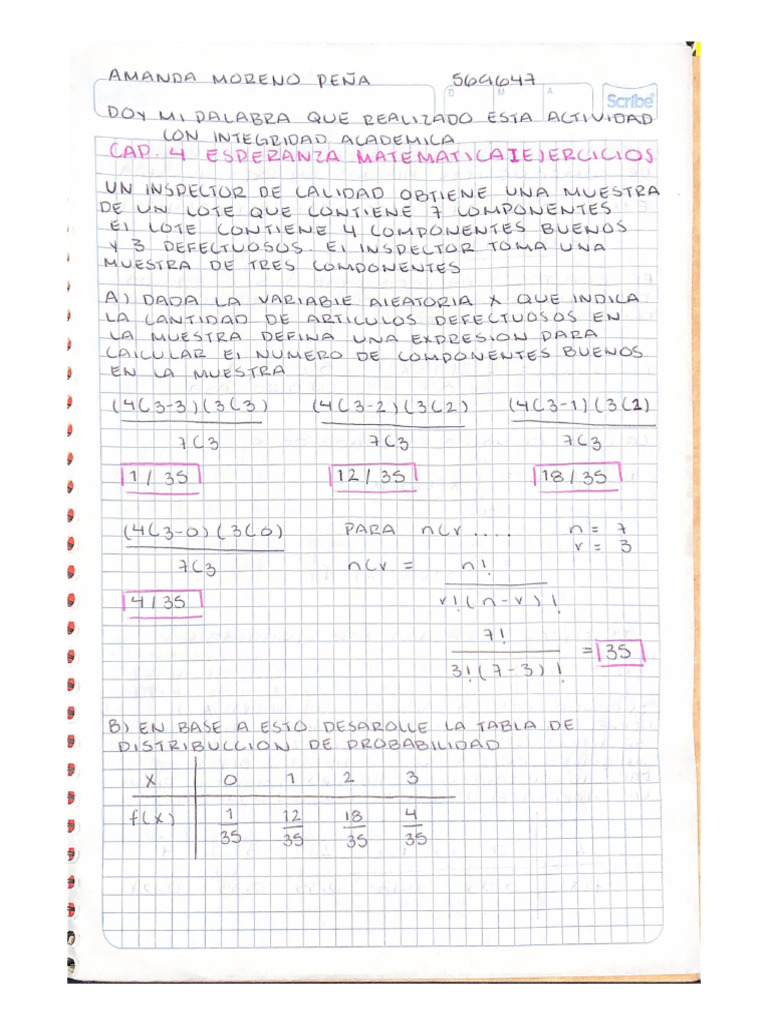 AMANDA MORENO PEÑA 569647
D M A
Scribe
DOY MI PALABRA QUE REALIZADO ESTA ACTIVIDAD
CON INTEGRIDAD ACADEMICA
CAP. 4 ESPERANZA MATEMATICA|EJERCICIOS
UN INSPECTOR DE CALIDAD OBTIENE UNA MUESTRA
DE UN LOTE QUE CONTIENE 7 COMPONENTES
El LOTE CONTIENE 4 COMPONENTES BUENOS
Y 3 DEFECTUOSOS. El INSPECTOR TOMA UNA
MUESTRA DE TRES COMPONENTES
A) DADA LA VARIABlE AlEATORIA X QUE INDICA
LA CANTIDAD DE ARTICULOS DEFECTUOSOS EN
LA MUESTRA DEFINA UNA EXPRESION PARA
CAlCULAR El NUMERO DE COMPONENTES BUENOS
EN LA MUESTRA
(4C3-3)(3C3) (4C3-2)(3C2) (4C3-1)(3C1)
7C3 7C3 7C3
1/35 12/35 18/35
(4C3-0)(3C0) PARA nCr .... n = 7
r = 3
7C3 nCr = n!
r!(n-r)!
4/35
7!
3!(7-3)! = 35
B) EN BASE A ESTO DESAROLLE LA TABLA DE
DISTRIBUCCION DE PROBABILIDAD
X 0 1 2 3
f(x) 1/35 12/35 18/35 4/35